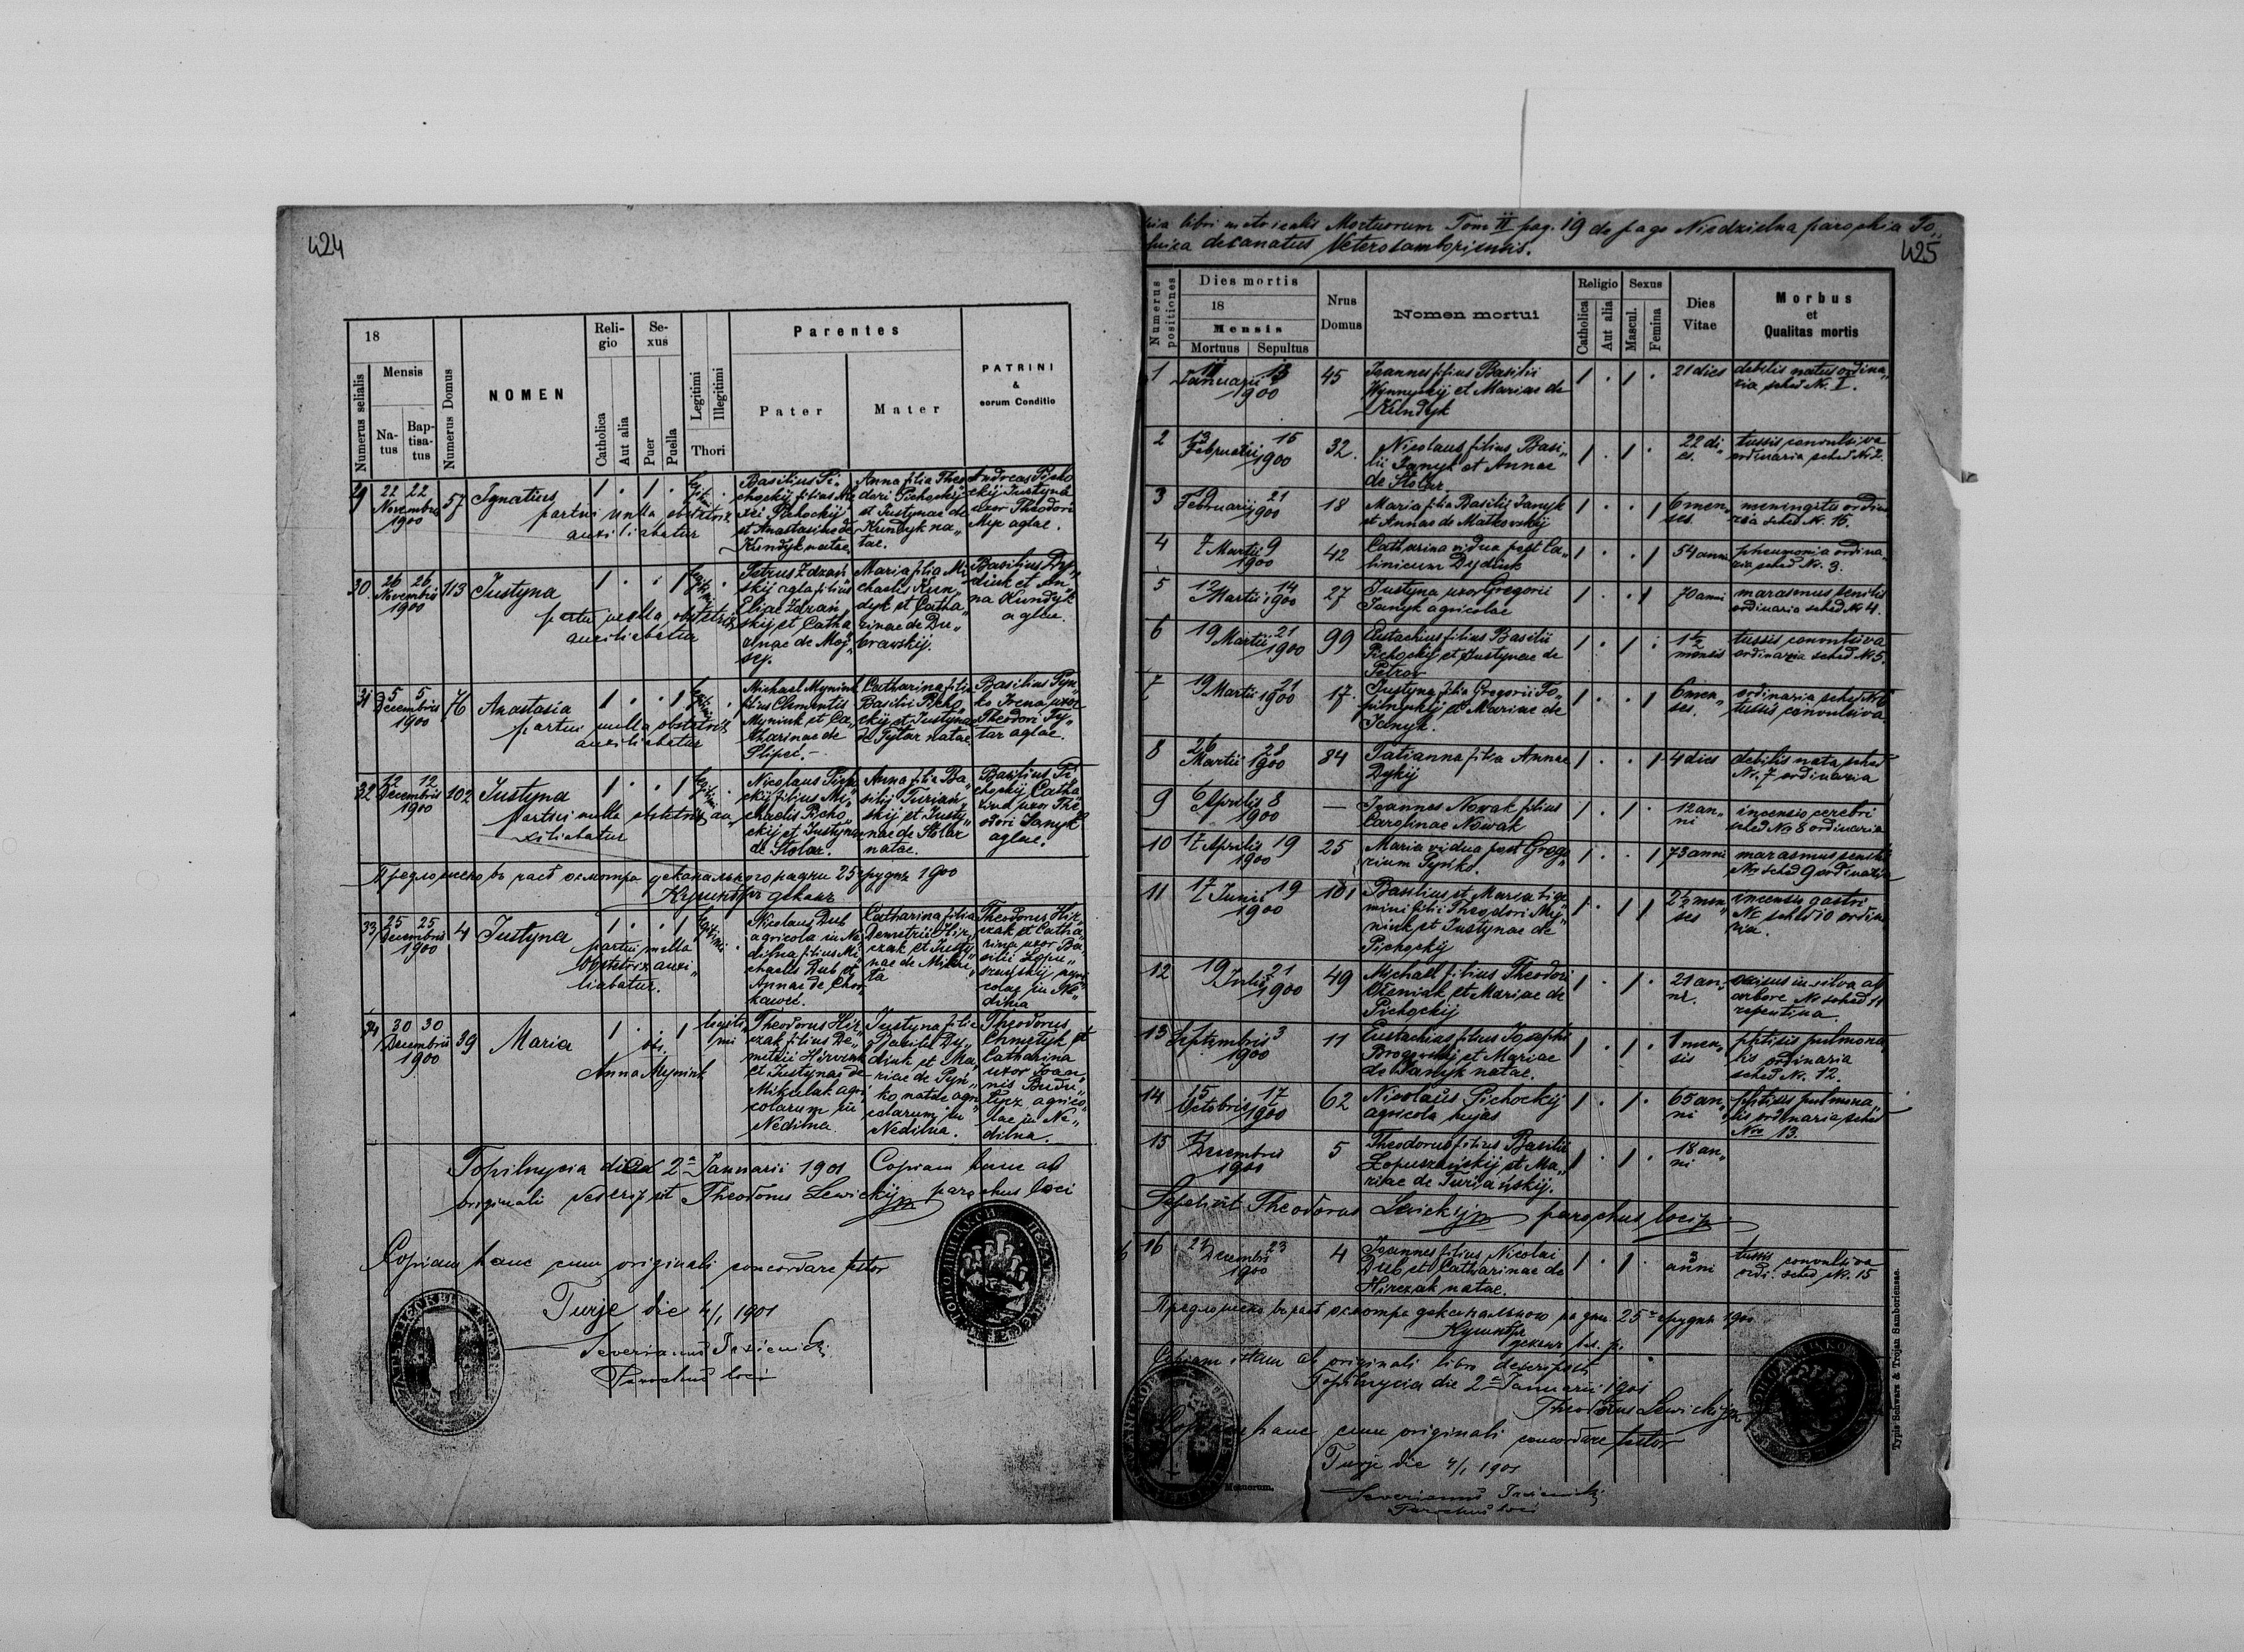 424
18
Numerus serialis
Mensis
Na-
tus
Bap-
tisa-
tus
Numerus Domus
NOMEN
Reli-
gio
Catholica
Aut alia
Se-
xus
Puer
Puella
Legitimi
Illegitimi
Thori
Parentes
Pater
Mater
PATRINI
&
eorum Conditio
29
22 22
Novembris
1900
57
Ignatius
partui nulla obstetrix
auxiliabatur
Basilius Pi„
chockij filius Ale
xii Pichockij
et Anastasiae de
Kundyk natae
Anna filia Theo
dori Pichockij
et Justynae de
Kundyk na„
tae.
Andreas Picho
ckij Justyna
uxor Theodori
aglae.
30
26 26
Novembris
1900
113
Justyna
partui nulla obstetrix
auxiliabatur
Petrus Zdzań
skij agla filius
Eliae Zdzań„
skij et Catha
rinae de Moj„
sej.
Maria filia Mi„
chaelis Kun„
dyk et Catha„
rinae de Du„
browskij.
Basilius Dy„
diuk et An„
na Kundyk
aglae.
31
5 5
Decembris
1900
76
Anastasia
partui nulla obstetrix
auxiliabatur
Michael Myniuk
filius Clementis
Myniuk et Ca„
tharinae de
Catharina filia
Basilii Picho„
ckij et Justyna
de Tytar natae.
Basilius Pyn„
ko Irena uxor
Theodori Ty„
tar aglae.
32
12 12
Decembris
1900
102
Justyna
partui nulla obstetrix au„
xiliabatur
Nicolaus Picho
ckij filius Mi„
chaelis Picho„
ckij et Justynae
de Stolar.
Anna filia Ba„
silij Turiań„
skij et Justy„
nae de Stolar
natae.
Basilius Pi„
chockij Catha
rina uxor The
odori Janyk
aglae.
33
25 25
Decembris
1900
4
Justyna
partui nulla
obstetrix auxi„
liabatur.
Nicolaus Dub
agricola in Ne
dilna filius Mi„
chaelis Dub et
Annae de Chor
kawec.
Catharina filia
Demetrii Hir„
czak et Justy„
nae de Miku„
ta
Theodorus Hir„
czak et Catha„
rina uxor Ba„
silii Łopu„
szańskij agri
colae in Ne„
dilna
34
30 30
Decembris
1900
39
Maria
Anna Myniuk
legiti
mi
Theodorus Hir„
czak filius De„
metrii Hirczak
et Justynae de
Mikulak agri
colarum in
Nedilna
Justyna filia
Basilii Dy„
diuk et Ma„
riae de Pyn„
ko natae agri
colarum in
Nedilna.
Theodorus
Chmetyk et
Catharina
uxor Joan„
nis
agrico„
lae in Ne„
dilna.
Topilnycia die 2a Januarii 1901 Copiam hanc ab
originali descripsit Theodorus Lewickij parochus loci
Copiam hanc cum originali concordare testor
Turje die 4/1 1901
Parochus loci
425
libri metricalis Mortuorum Tom II pag. 19 de pago Niedzielna parochia To„
decanatus Veterosamboriensis.
Numerus
positiones
Dies mortis
18
Mensis
Mortuus
Sepultus
Nrus
Domus
Nomen mortui
Religio
Catholica
Aut alia
Sexus
Mascul.
Femina
Dies
Vitae
Morbus
et
Qualitas mortis
1
11 13
Januarii
1900
45
Joannes filius Basilii
Wynnyckij et Mariae de
Kundyk
21 dies
debilis natus ordina„
ria sched Nr. 1.
2
13 15
Februarii
1900
32.
Nicolaus filius Basi„
lii Janyk et Annae
de Stolar
22 di„
es.
tussis convulsiva
ordinaria sched Nr 2.
3
19 21
Februarii
1900
18
Maria filia Basilii Janyk
et Annae de Matkowskij
6 men„
ses.
meningitis ordina
ria sched Nr. 16.
4
7 Martii 9
1900
42
Catharina vidua post Ca„
linicum Dydiuk
54 anni
pneumonia ordina„
ria sched Nr. 3.
5
12 Martii 14
1900
27
Justyna uxor Gregorii
Janyk agricolae
70 anni
marasmus senilis
ordinaria sched Nr 4.
6
19 Martii 21
1900
99
Eustachius filius Basilii
Pichockij et Justynae de
Petrow
1 1/2
mensis
tussis convulsiva
ordinaria sched Nr 5.
7
19 Martii 21
1900
17.
Justyna filia Gregorii To„
pilnyckij et Mariae de
Janyk.
6 men„
ses.
ordinaria sched Nr 6
tussis convulsiva
8
26 28
Martii 1900
84
Tatianna filia Annae
Dykij
4 dies
debilis nata sched
Nr. 7 ordinaria
9
6 Aprilis 8
1900
—
Joannes Nowak filius
Carolinae Nowak
12 an„
ni
incensio cerebri
sched Nr 8 ordinaria
10
17 Aprilis 19
1900
25
Maria vidua post Grego„
rium Pynko.
73 anni
marasmus senilis
Nr sched 9 ordinaria
11
17 Junii 19
1900
101
Basilius et Maria bige„
mini filii Theodori My„
niuk et Justynae de
Pichockij
2 1/2 men„
ses
incensio gastri
Nr sched 10 ordina
ria.
12
19 21
Julii
1900
49
Michael filius Theodori
Oleniak et Mariae de
Pichockij
21 an„
ni.
occisus in silva ab
arbore Nr sched 11
repentina
13
Septembris 3
1900
11
Eustachius filius Josephi
Brogowskij et Mariae
de Janyk natae.
1 men„
sis
phtisis pulmona„
lis ordinaria
sched Nr. 12.
14
15 17
Octobris
1900
62
Nicolaus Pichockij
agricola hujas
65 an„
ni
phtisis pulmona
lis ordinaria sched
Nro 13.
15
Decembris
1900
5
Theodorus filius Basilii
Łopuszańskij et Ma„
riae de Turiańskij.
18 an„
ni
Sepelivit Theodorus Lewickij parochus loci
16
21 23
Decembris
1900
4
Joannes filius Nicolai
Dub et Catharinae de
Hirczak natae.
3
anni
tussis convulsiva
ordi. sched Nr. 15
Copiam istam ab originali libro descripsit
Topilnycia die 2a Januarii 1901
Theodorus Lewickij
hanc cum originali concordare testor
Turje die 4/1 1901
Parochus loci
Typis Schwarz & Trojan Samboriensae.